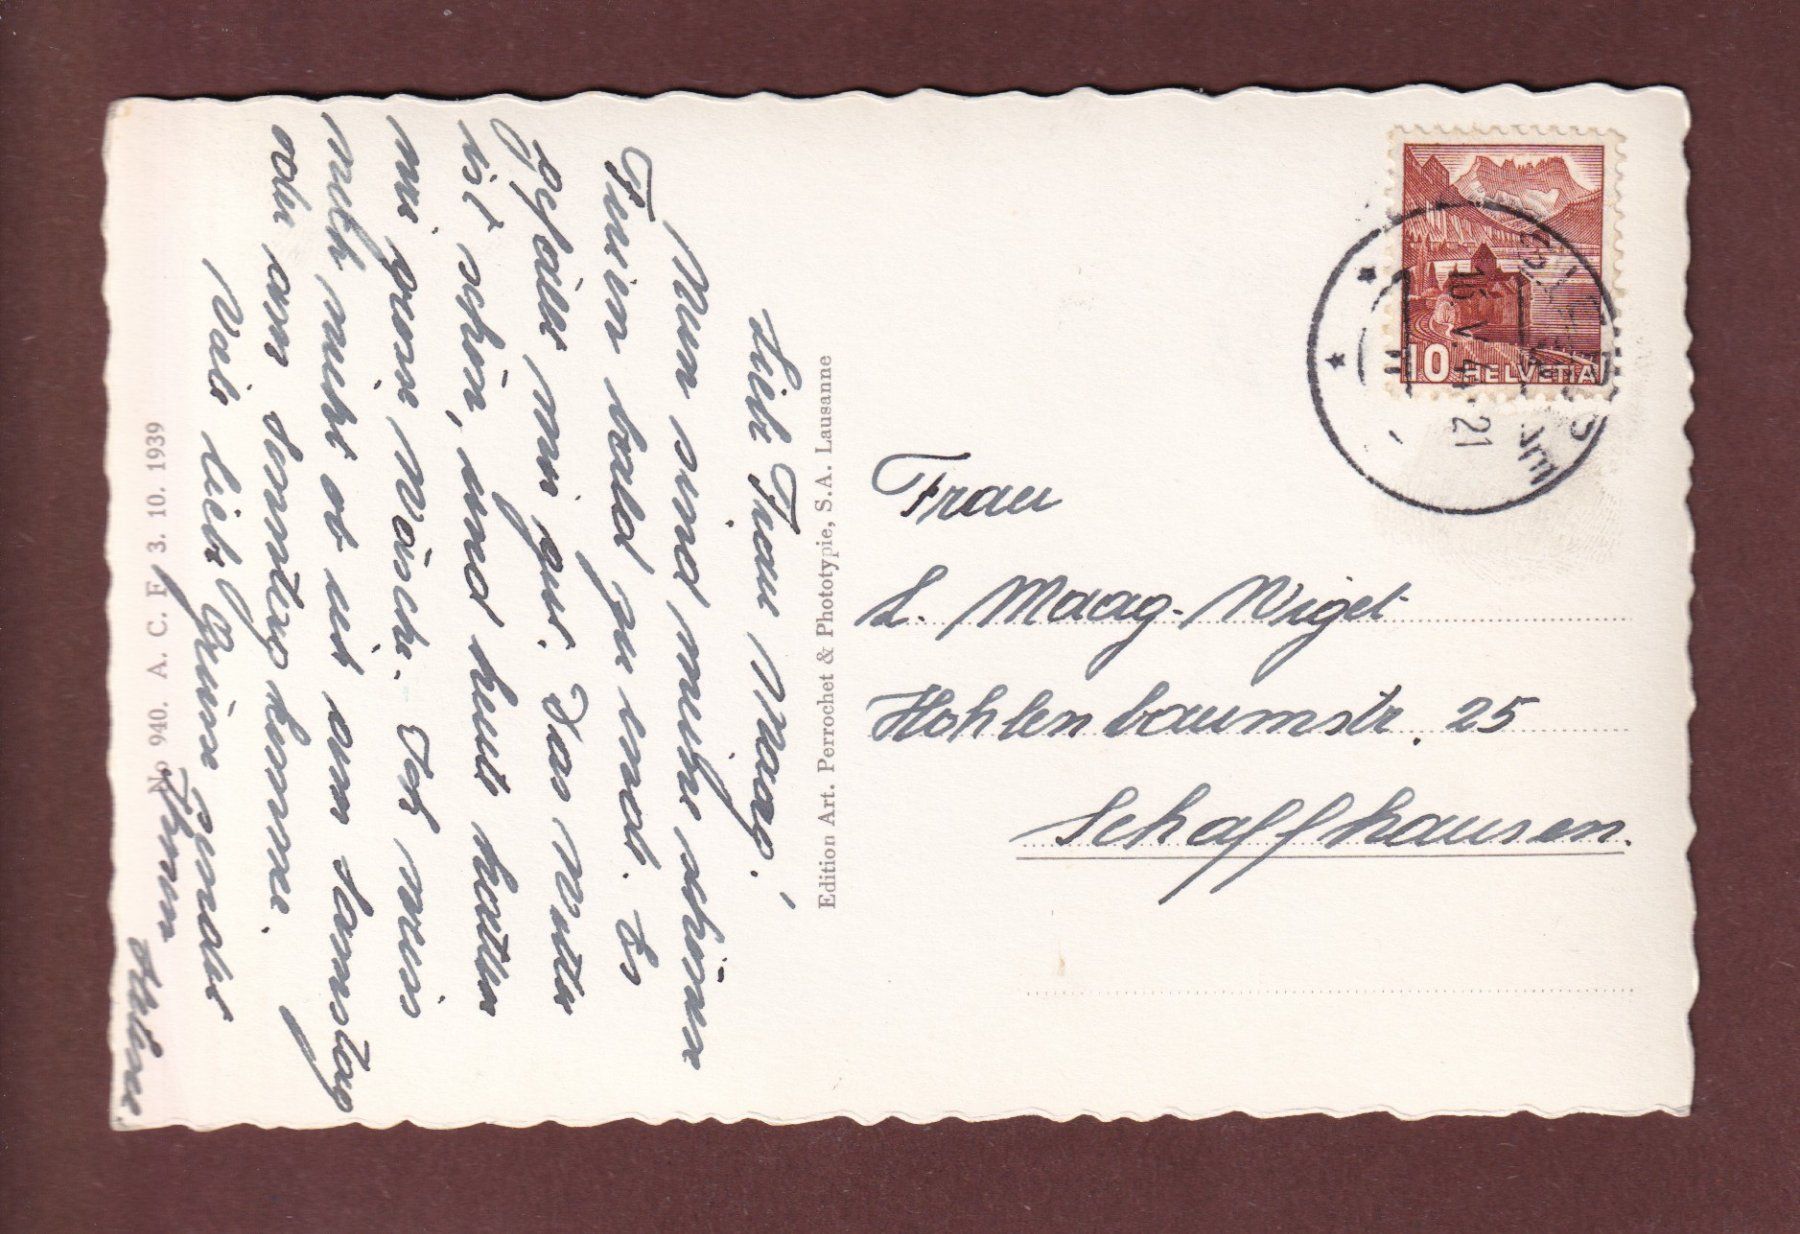 Liebe Frau Maag!
Nun sind meine schönen
Ferien bald zu ende. Es
gefällt mir gut. Das Wetter
ist schön, und heute hatten
wir grosse Wäsche. Ich weiss
nicht ob ich am Samstag
oder am Sonntag komme.
Viele liebe Grüsse sendet
Ihnen
No 940. A. C. F. 3. 10. 1939
Edition Art. Perrochet & Phototypie, S.A. Lausanne
10 HELVETIA
16. V. 4 21
Frau
L. Maag-Wiget
Hohlenbaumstr. 25
Schaffhausen.